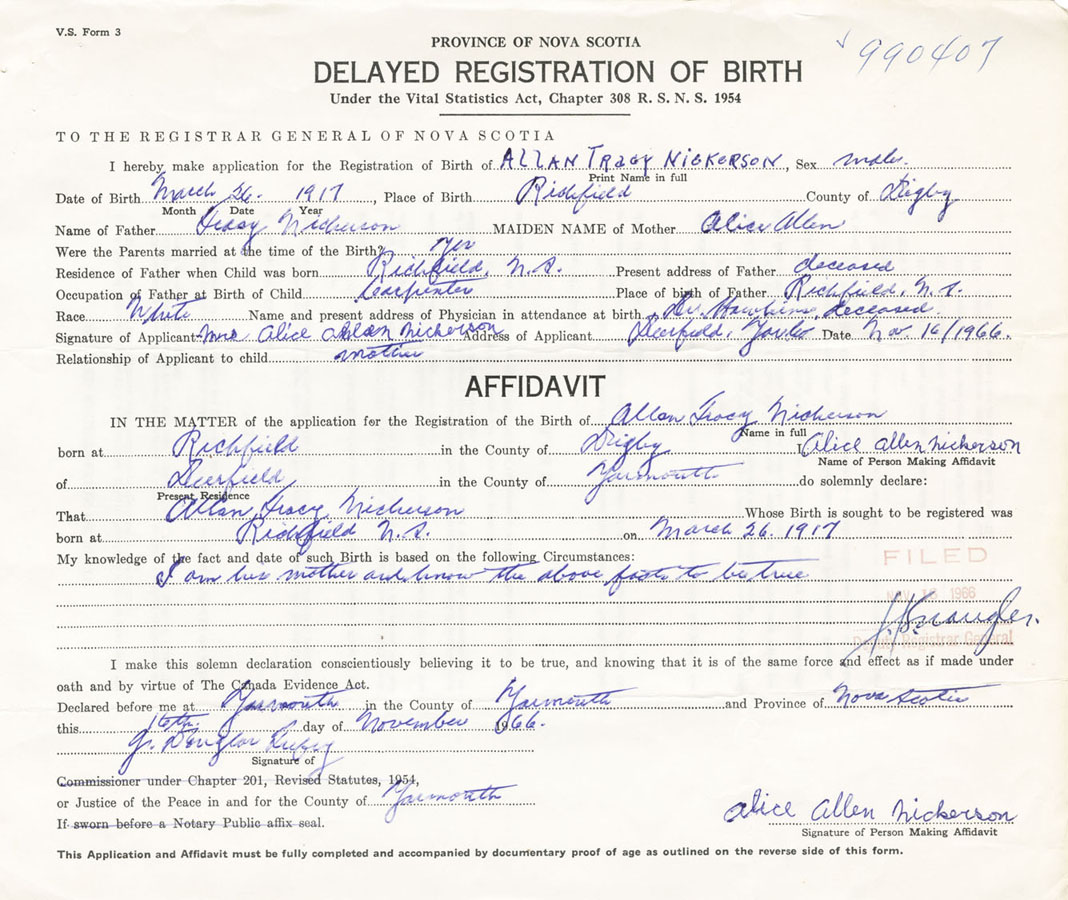 V.S. Form 3
PROVINCE OF NOVA SCOTIA
990407
DELAYED REGISTRATION OF BIRTH
Under the Vital Statistics Act, Chapter 308 R. S. N. S. 1954
TO THE REGISTRAR GENERAL OF NOVA SCOTIA
I hereby make application for the Registration of Birth of ALLAN TRACY NICKERSON, Sex male.
Print Name in full
Date of Birth March 26. 1917, Place of Birth Richfield County of Digby
Month Date Year
Name of Father Tracy Nickerson MAIDEN NAME of Mother Alice Allen
Were the Parents married at the time of the Birth? Yes
Residence of Father when Child was born Richfield, N.S. Present address of Father deceased
Occupation of Father at Birth of Child Carpenter Place of birth of Father Richfield, N.S.
Race White Name and present address of Physician in attendance at birth Dr. Hawkins, deceased.
Signature of Applicant Mrs Alice Allan Nickerson Address of Applicant Deerfield, Date Nov. 16/1966.
Relationship of Applicant to child mother
AFFIDAVIT
IN THE MATTER of the application for the Registration of the Birth of Allan Tracy Nickerson
Name in full
born at Richfield in the County of Digby I Alice Allen Nickerson
Name of Person Making Affidavit
of Deerfield in the County of Yarmouth do solemnly declare:
Present Residence
That Allan Tracy Nickerson Whose Birth is sought to be registered was
born at Richfield N.S. on March 26. 1917
My knowledge of the fact and date of such Birth is based on the following Circumstances:
FILED
I am his mother and know the above facts to be true
NOV 1966
Deputy Registrar General
I make this solemn declaration conscientiously believing it to be true, and knowing that it is of the same force and effect as if made under
oath and by virtue of The Canada Evidence Act.
Declared before me at Yarmouth in the County of Yarmouth and Province of Nova Scotia
this 16th. day of November 1966.
J. Douglas
Signature of
Commissioner under Chapter 201, Revised Statutes, 1954,
or Justice of the Peace in and for the County of Yarmouth
If sworn before a Notary Public affix seal.
Alice Allen Nickerson
Signature of Person Making Affidavit
This Application and Affidavit must be fully completed and accompanied by documentary proof of age as outlined on the reverse side of this form.